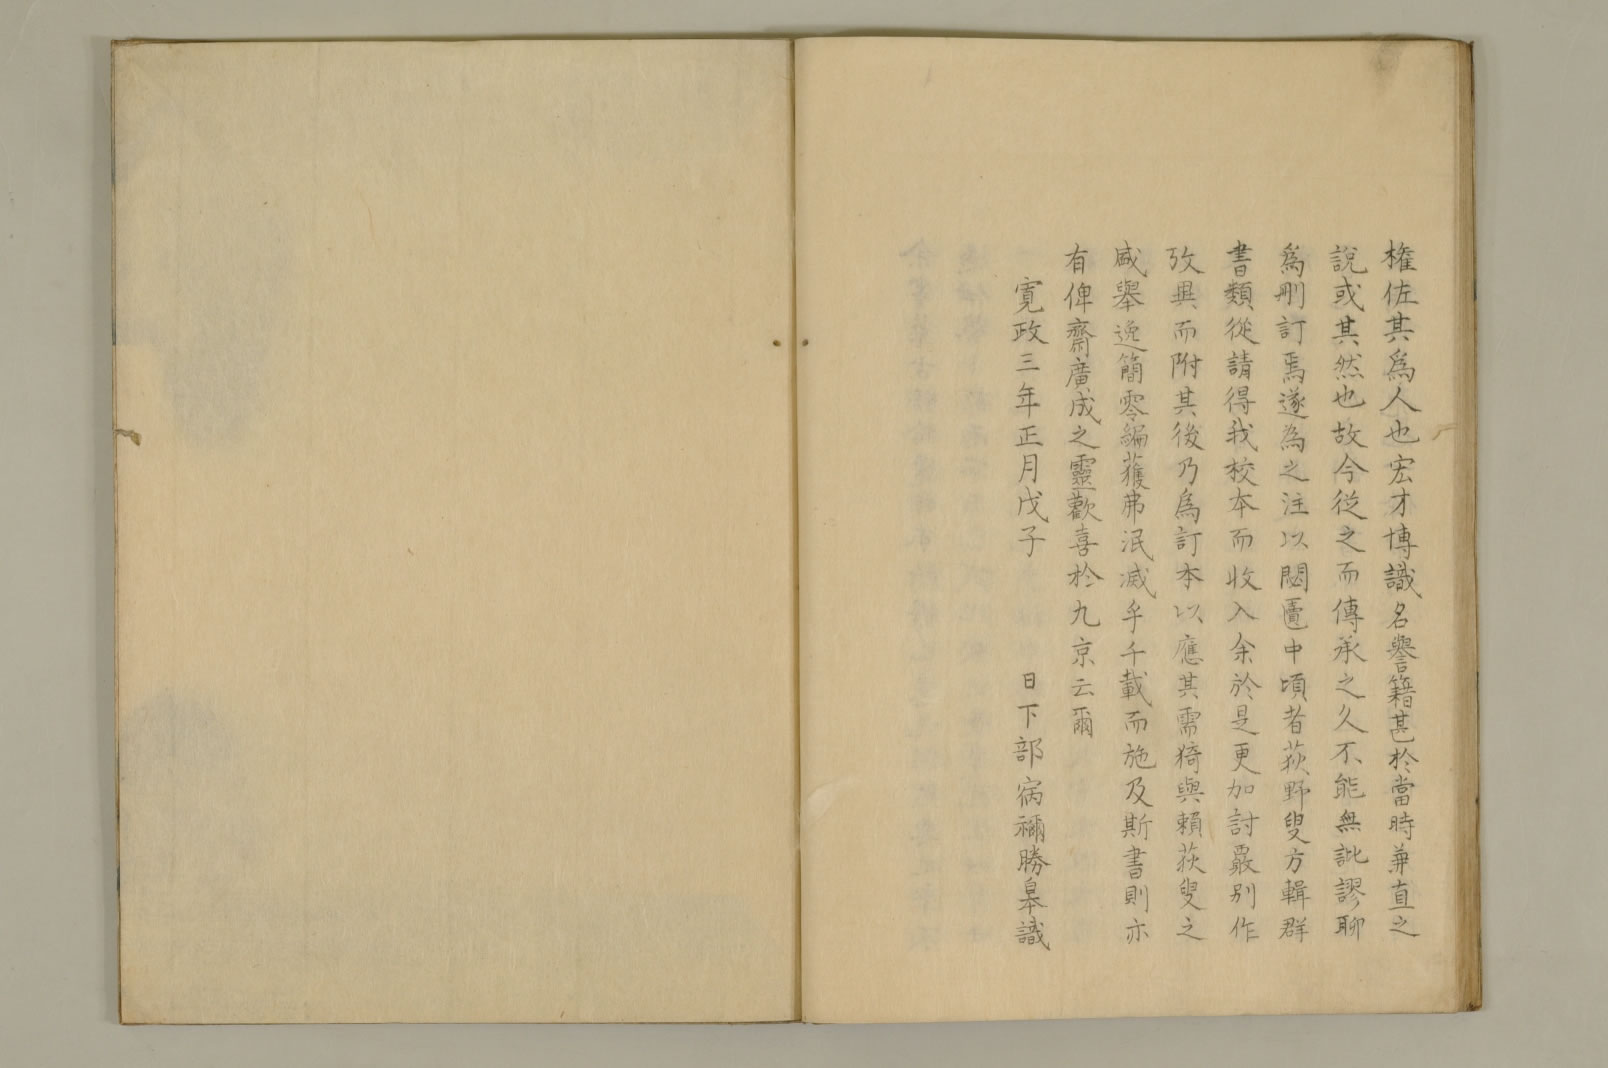 権佐其爲人也宏才博識名譽籍甚於當時兼直之
說或其然也故今從之而傳承之久不能無訛謬聊
爲刪訂焉遂為之注以閟匱中頃者荻野叟方輯群
書類從請得我校本而收入余於是更加討覈別作
攷異而附其後乃爲訂本以應其需猗與賴荻叟之
盛舉逸簡零編獲弗泯滅乎千載而施及斯書則亦
有俾齋廣成之靈歡喜於九京云爾
寬政三年正月戊子
日下部宿禰勝皋識